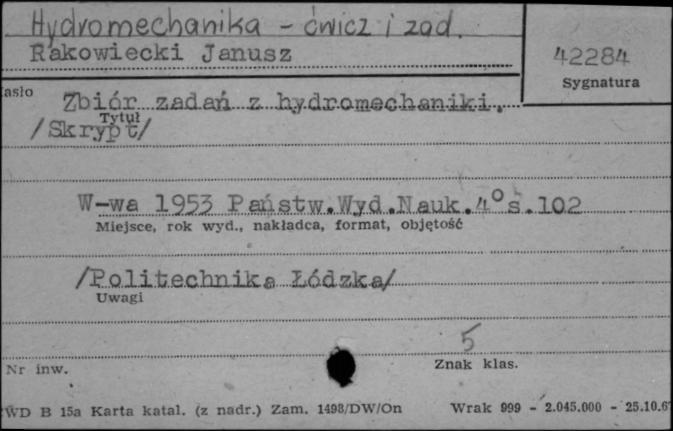 Hydromechanika - ćwicz i zad.
Rakowiecki Janusz
42284
Sygnatura
asło
Zbiór zadań z hydromechaniki.
Tytuł
/Skrypt/
W-wa 1953 Państw.Wyd.Nauk.4° s.102
Miejsce, rok wyd., nakładca, format, objętość
/Politechnika Łódzka/
Uwagi
5
Nr inw.
Znak klas.
WD B 15a Karta katal. (z nadr.) Zam. 1498/DW/On Wrak 999 - 2.045.000 - 25.10.6